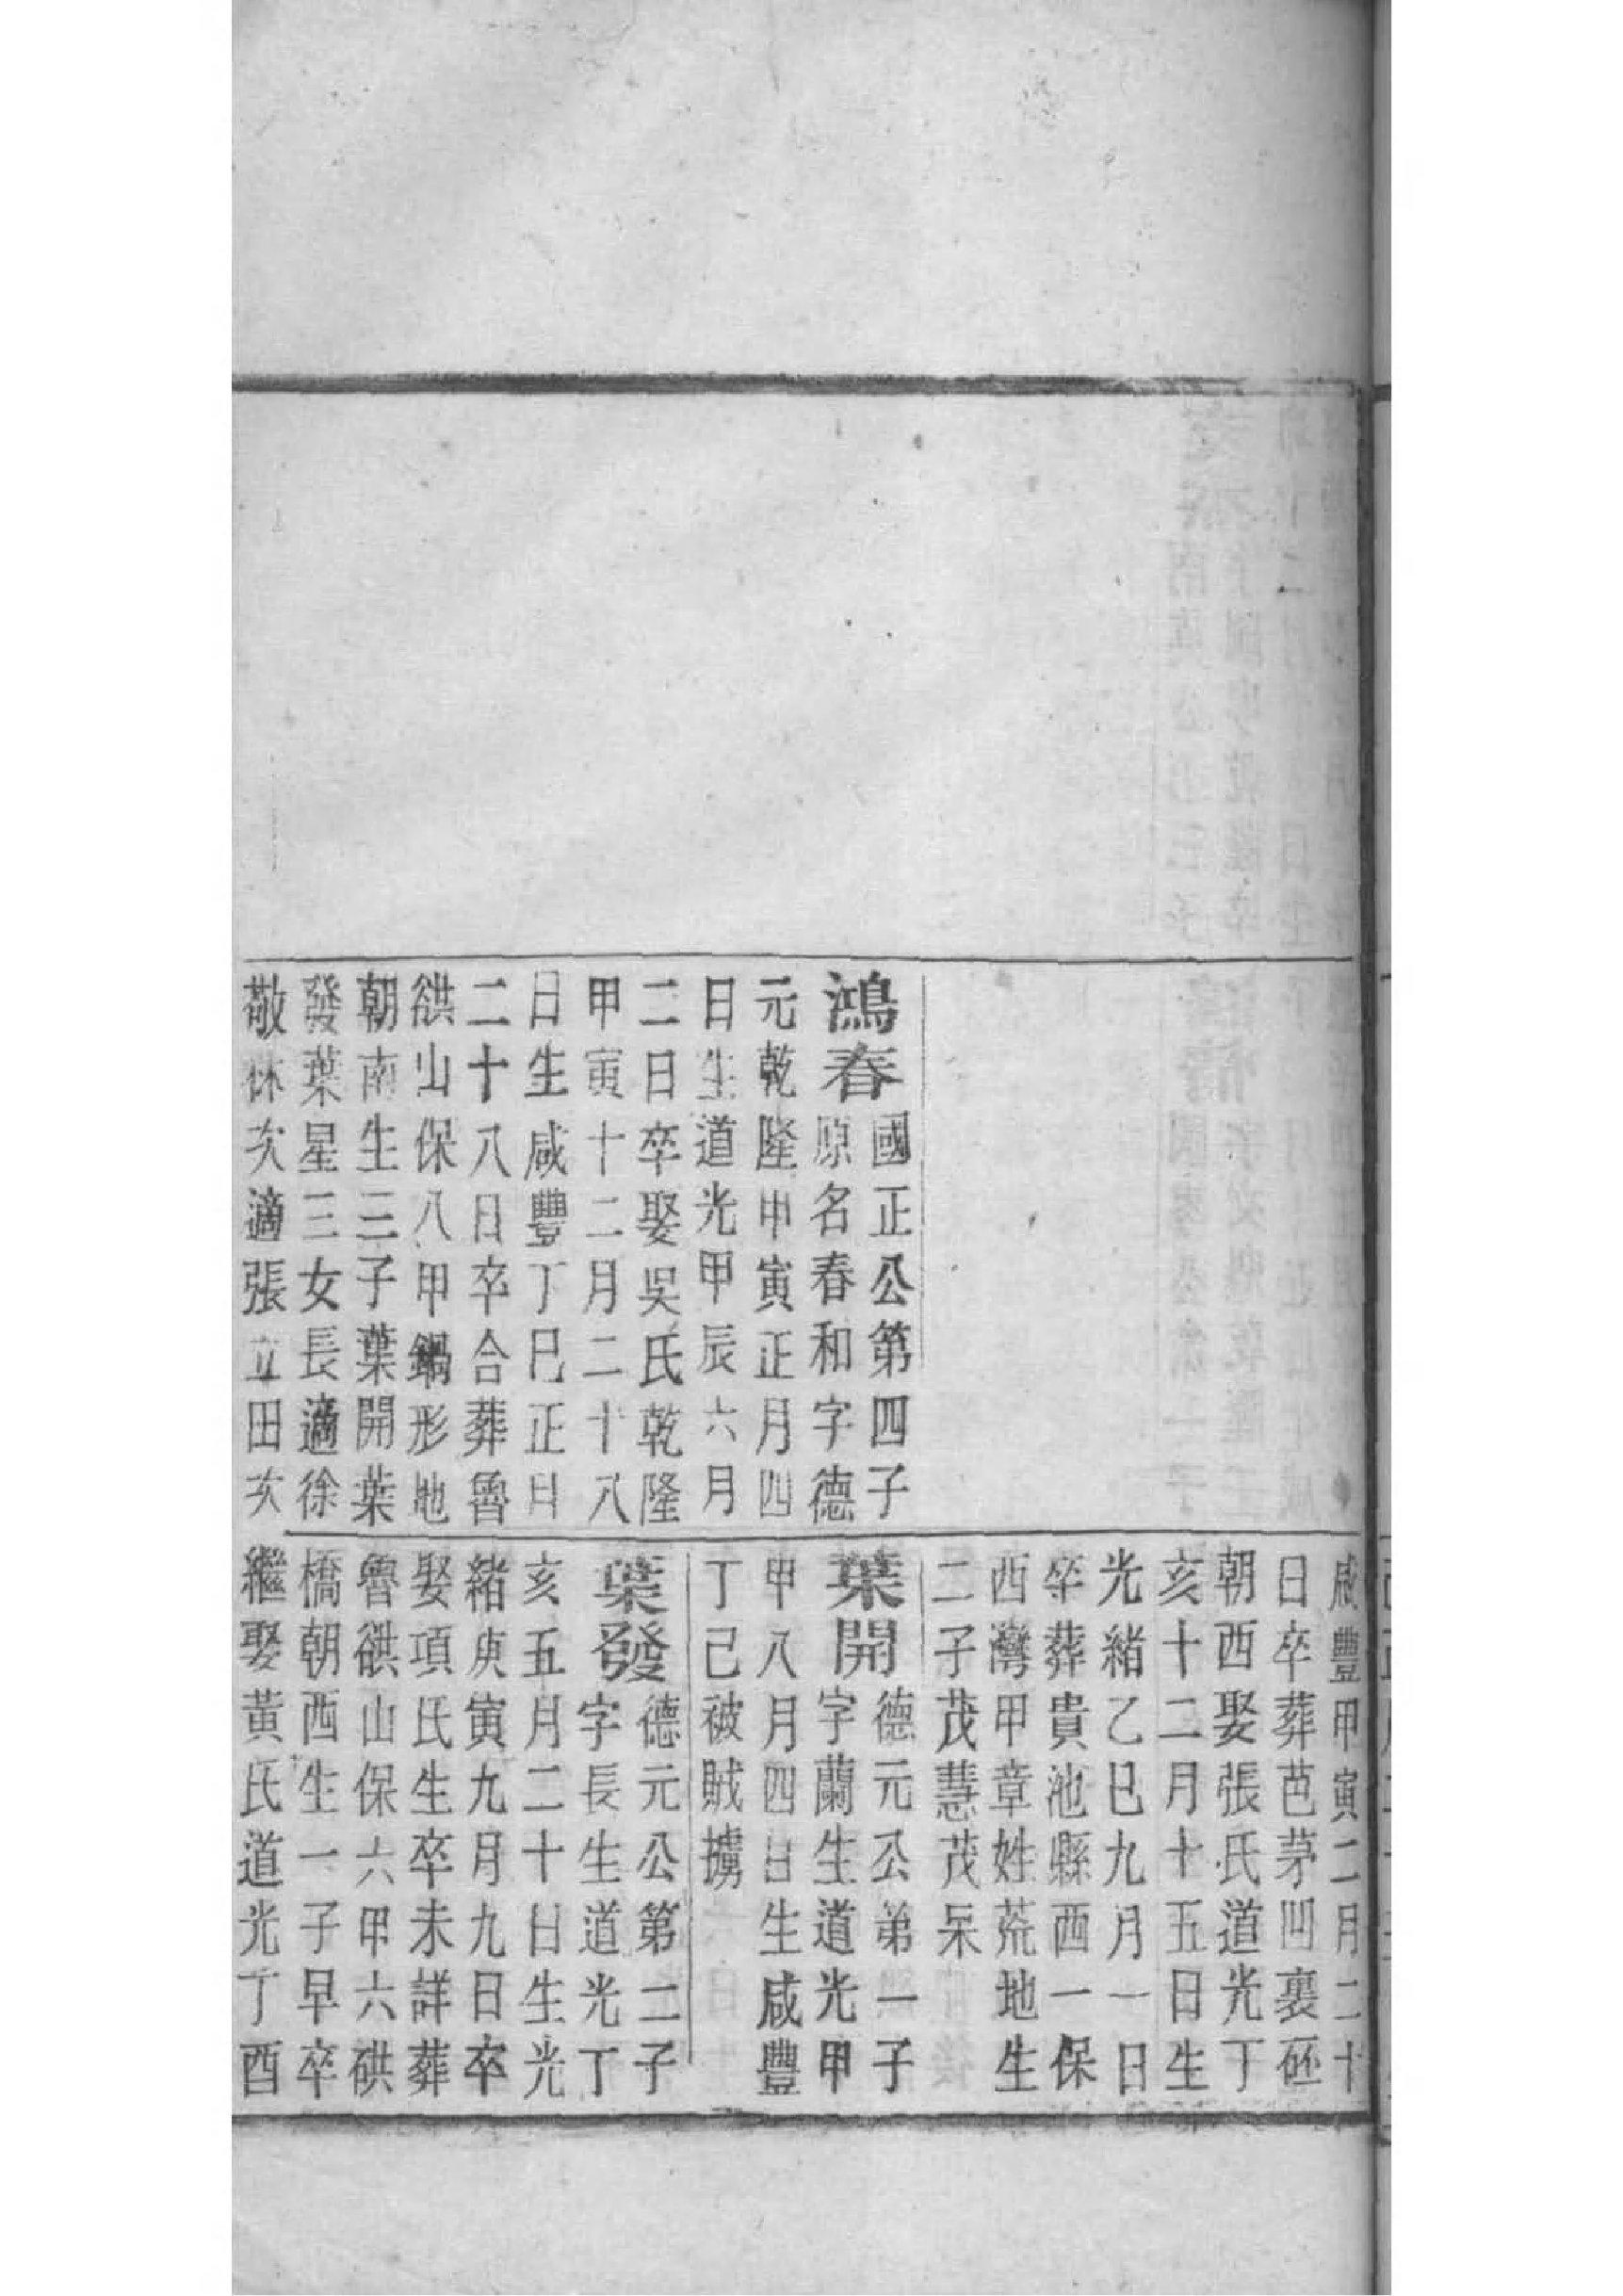 鴻春國正公第四子
原名春和字德
元乾隆甲寅正月四
日生道光甲辰六月
二日卒娶吳氏乾隆
甲寅十二月二十八
日生咸豐丁巳正日
二十八日卒合葬魯
谼山保八甲鍋形地
朝南生二子葉開葉
發葉星三女長適徐
敬林次適張立田次
咸豐甲寅二月二十
日卒葬芭茅凹裏砸
朝西娶張氏道光丁
亥十二月十五日生
光緒乙巳九月一日
卒葬貴池縣西一保
西灣甲章姓荒地生
二子茂慧茂呆
葉開德元公弟一子
字蘭生道光甲
甲八月四日生咸豐
丁己被賊擄
葉發德元公第二子
字長生道光丁
亥五月二十日生光
緒庚寅九月九日卒
娶項氏生卒未詳葬
魯谼山保六甲六硔
橋朝西生一子早卒
繼娶黃氏道光丁酉